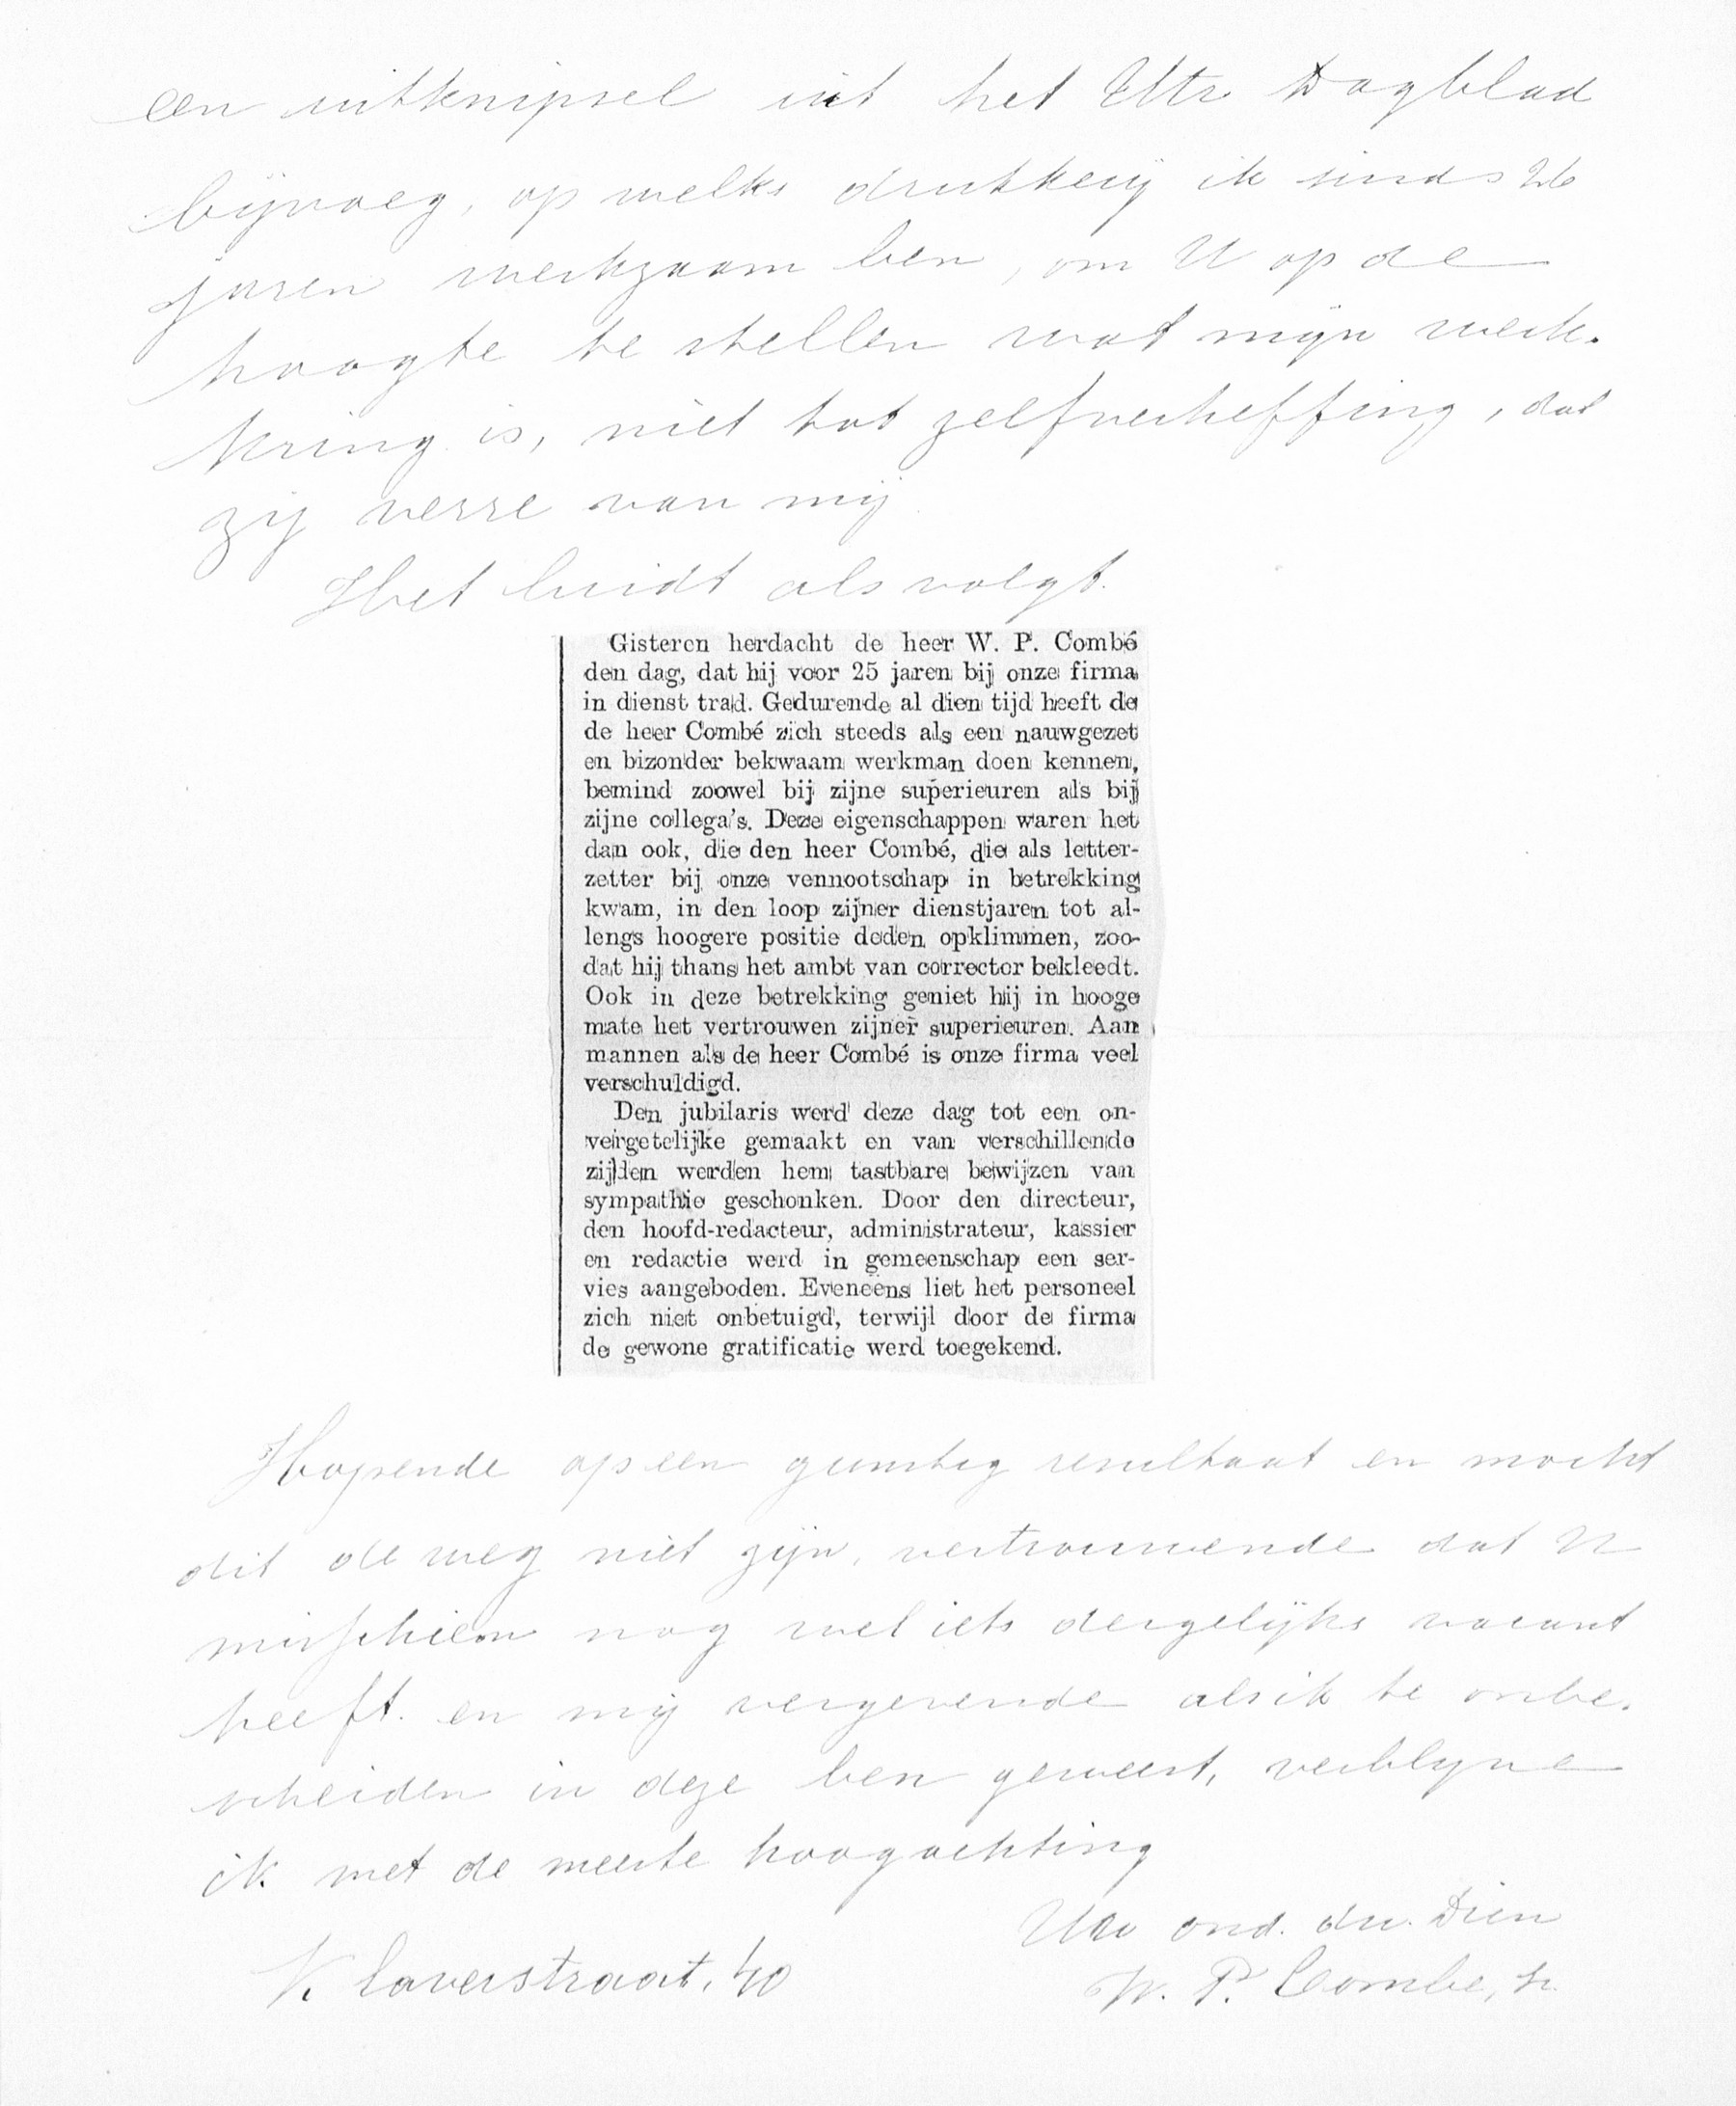 een uitknipsel uit het Utr Dagblad
bijvoeg, op welks drukkerij ik sinds 26
jaren werkzaam ben, om U op de
hoogte te stellen wat mijn werk-
kring is, niet tot zelfverheffing, dat
zij verre van mij
Het luidt als volgt.
Gisteren herdacht de heer W. P. Combé
den dag, dat hij voor 25 jaren bij onze firma
in dienst trad. Gedurende al dien tijd heeft de
de heer Combé zich steeds als een nauwgezet
en bizonder bekwaam werkman doen kennen,
bemind zoowel bij zijne superieuren als bij
zijne collega's. Deze eigenschappen waren het
dan ook, die den heer Combé, die als letter-
zetter bij onze vennootschap in betrekking
kwam, in den loop zijner dienstjaren tot al-
lengs hoogere positie deden opklimmen, zoo-
dat hij thans het ambt van corrector bekleedt.
Ook in deze betrekking geniet hij in hooge
mate het vertrouwen zijner superieuren. Aan
mannen als de heer Combé is onze firma veel
verschuldigd.
Den jubilaris werd deze dag tot een on-
vergetelijke gemaakt en van verschillende
zijden werden hem tastbare bewijzen van
sympathie geschonken. Door den directeur,
den hoofd-redacteur, administrateur, kassier
en redactie werd in gemeenschap een ser-
vies aangeboden. Eveneens liet het personeel
zich niet onbetuigd, terwijl door de firma
de gewone gratificatie werd toegekend.
Hopende op een gunstig resultaat en mocht
dit de weg niet zijn, vertrouwende dat U
misschien nog wel iets dergelijks vacant
heeft. en mij vergevende als ik te onbe-
scheiden in deze ben geweest, verblijve
ik met de meeste hoogachting
Uw ond. du. Dien
Klaverstraat, 40
W. P. Combe, Sr.